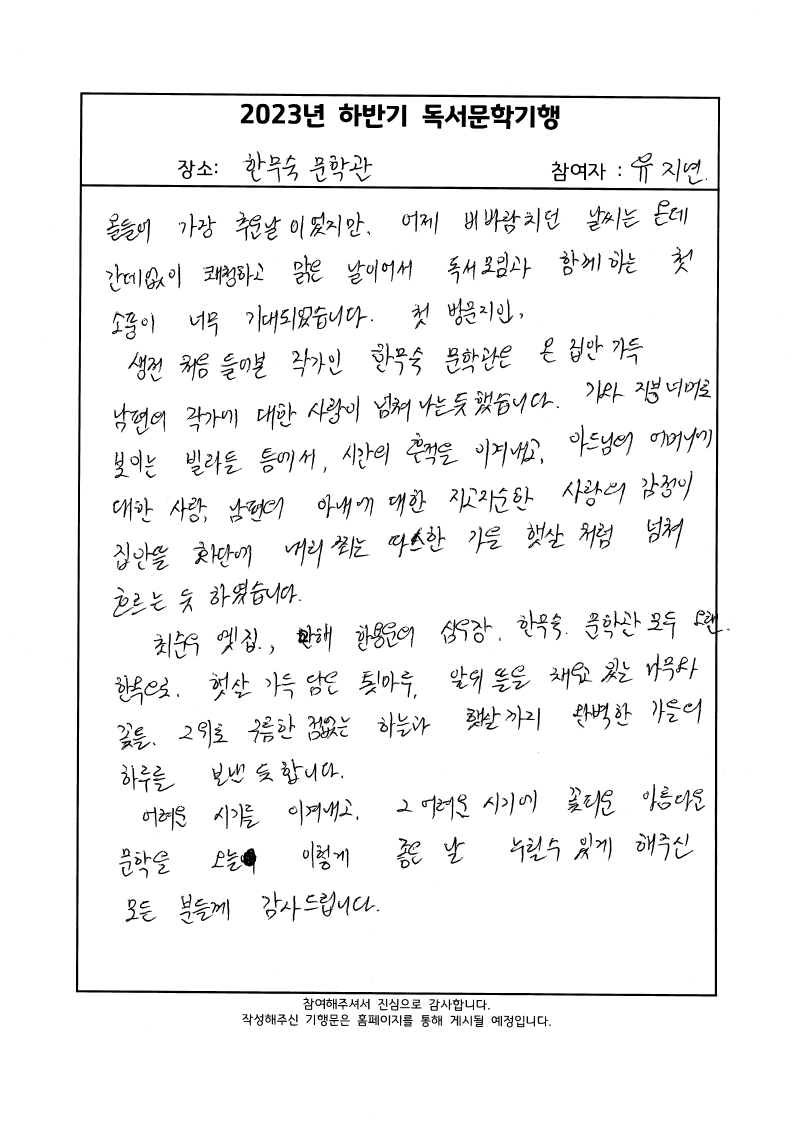 2023년 하반기 독서문학기행
장소: 한무숙 문학관 참여자 : 유지연.
올들어 가장 추운날이었지만, 어제 비바람치던 날씨는 온데
간데없이 쾌청하고 맑은 날이어서 독서모임과 함께 하는 첫
소풍이 너무 기대되었습니다. 첫 방문지인,
생전 처음 들어본 작가인 한무숙 문학관은 온 집안 가득
남편의 작가에 대한 사랑이 넘쳐 나는듯 했습니다. 기와 지붕너머로
보이는 빌라들 틈에서, 시간의 흔적을 이겨내고, 아드님의 어머니에
대한 사랑, 남편의 아내에 대한 지고지순한 사랑의 감정이
집안뜰 화단에 내리 쬐는 따스한 가을 햇살 처럼 넘쳐
흐르는 듯 하였습니다.
최순우 옛집, 만해 한용운의 심우장, 한무숙 문학관 모두 오랜
한옥으로, 햇살 가득 담은 툇마루, 앞뒤 뜰을 채우고 있는 나무와
꽃들, 그 위로 구름한 점없는 하늘과 햇살까지 완벽한 가을의
하루를 보낸 듯 합니다.
어려운 시기를 이겨내고, 그 어려운 시기에 꽃피운 아름다운
문학을 오늘 이렇게 좋은 날 누릴수 있게 해주신
모든 분들께 감사드립니다.
참여해주셔서 진심으로 감사합니다.
작성해주신 기행문은 홈페이지를 통해 게시될 예정입니다.